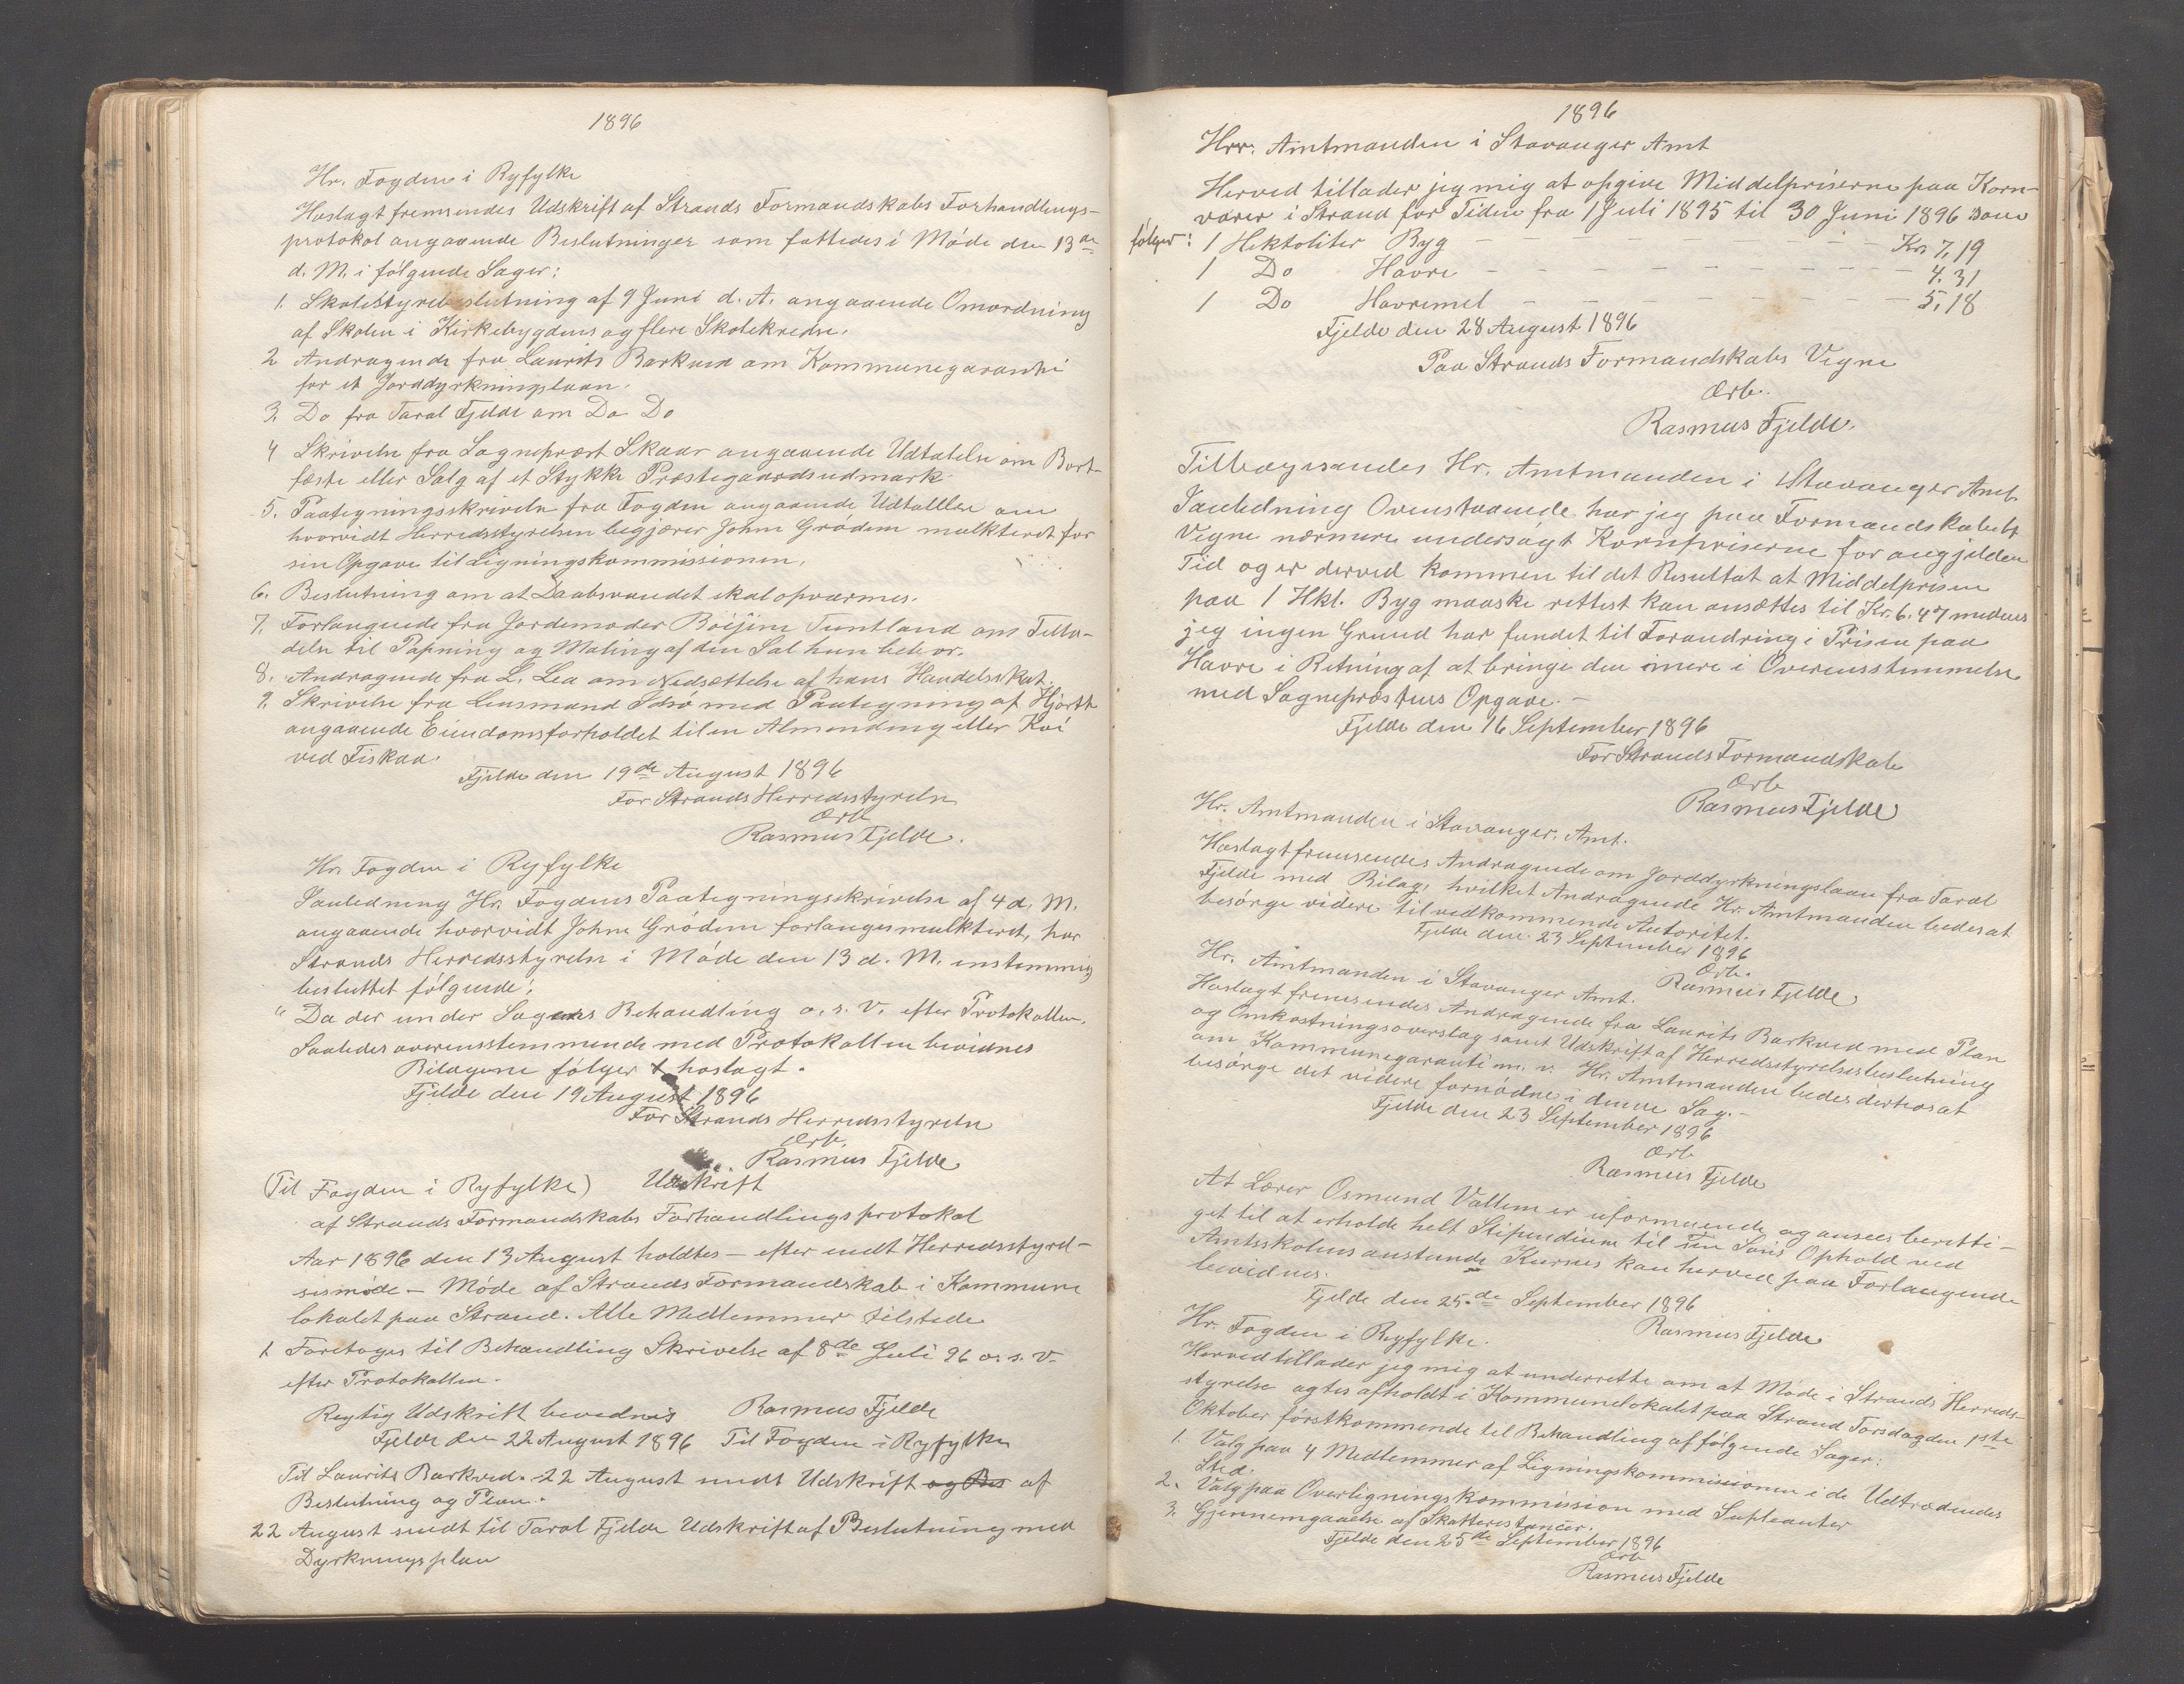 1896
Hr. Fogden i Ryfylke
Hoslagt fremsendes Udskrift af Strands Formandskabs Forhandlings-
protokol angaaende Beslutninger som fattedes i Møde den 13de
d. M. i følgende Sager:
1. Skolestyrebeslutning af 9 Juni d. A. angaaende Omordning
af Skolen i Kirkebygdens og flere Skolekredse.
2 Andragende fra Laurits Barkved om Kommunegaranti
for et Jorddyrkningslaan.
3. Do fra Taral Fjelde om Do Do
4 Skrivelse fra Sogneprest Skaar angaaende Udtalelse om Bort-
fæste eller Salg af et Stykke Præstegaardsudmark
5. Paategningsskrivelse fra Fogden angaaende Udtallelse om
hvorvidt Herredsstyrelsen begjærer John Grödem mulkteret for
sin Opgave til Ligningskommissionen.
6. Beslutning om at Daabsvandet skal opvarmes.
7. Forlangende fra Jordemoder Tuntland om Tilla-
delse til Papning og Maling af den Sal hun bebor.
8. Andragende fra L. Lea om Nedsættelse af hans Handelsskat.
9. Skrivelse fra Lensmand Idsø med Paategning af Hjorth
angaaende Eiendomsforholdet til en Almending eller Kví
ved Fiskaa.
Fjelde den 19de August 1896
For Strands Herredsstyrelse
Ærb
Rasmus Fjelde.
Hr. Fogden i Ryfylke
I anledning Hr. Fogdens Paategningsskrivelse af 4 d. M.
angaaende hvorvidt John Grödem forlanges mulkteret, har
Strands Herredsstyrelse i Møde den 13 d. M. enstemmig
besluttet følgende:
" Da der under Sagens Behandling o. s. v. efter Protokollen.
Saaledes overensstemmende med Protokollen bevidnes
Bilagene følger hoslagt.
Fjelde den 19 August 1896
For Strands Herredsstyrelse
Ærb.
Rasmus Fjelde
(Til Fogden i Ryfylke) Udskrift
af Strands Formandskabs Forhandlingsprotokol
Aar 1896 den 13 August holdtes – efter endt Herredsstyrel-
sesmøde – Møde af Strands Formandskab i Kommune
lokalet paa Strand. Alle Medlemmer tilstede
1 Foretoges til Behandling Skrivelse af 8de Juli 96 o. s. v.
efter Protokollen.
Rigtig Udskrift bevidnes Rasmus Fjelde
Fjelde den 22 August 1896 Til Fogden i Ryfylke
Til Laurits Barkved. 22 August sendt Udskrift og Bes af
Beslutning og Plan.
22 August sendt til Taral Fjelde Udskrift af Beslutning med
Dyrkningsplan
1896
Hrr. Amtmanden i Stavanger Amt
Herved tillader jeg mig at opgive Middelpriserne paa Korn-
varer i Strand for Tiden fra 1 Juli 1895 til 30 Juni 1896 som
følger: 1 Hektoliter Byg – – – – – – – Kr. 7,19
1 Do Havre – – – – – – – – – 4.31
1 Do Havremel – – – – – – – – 5,18
Fjelde den 28 August 1896
Paa Strands Formandskabs Vegne
Ærb.
Rasmus Fjelde.
Tilbagesendes Hr. Amtmanden i Stavanger Amt.
I anledning Ovenstaaende har jeg paa Formandskabets
Vegne nærmere undersøgt Kornpriserne for angjeldende
Tid og er derved kommen til det Resultat at Middelprisen
paa 1 Hkl. Byg maaske rettest kan ansættes til Kr. 6.47 medens
jeg ingen Grund har fundet til Forandring i Prisen paa
Havre i Retning af at bringe den mere i Overensstemmelse
med Sogneprestens Opgave. –
Fjelde den 16 September 1896
For Strands Formandskab
Ærb
Rasmus Fjelde
Hr. Amtmanden i Stavanger. Amt.
Hoslagt fremsendes Andragende om Jorddyrkningslaan fra Taral
Fjelde med Bilag, hvilket Andragende Hr. Amtmanden bedes at
besørge videre til vedkommende Autoritet.
Fjelde den 23 September 1896
Ærb.
Rasmus Fjelde
Hr. Amtmanden i Stavanger Amt.
Hoslagt fremsendes Andragende fra Laurits Barkved med Plan
og Omkostningsoverslag samt Udskrift af Herredsstyrelsesbeslutning
om Kommunegaranti m. v. Hr. Amtmanden bedes derhos at
besørge det videre fornødne i denne Sag. –
Fjelde den 23 September 1896
Ærb
Rasmus Fjelde
At Lærer Osmund Vallem er uformuende og ansees beretti-
get til at erholde helt Stipendium til sin Søns Ophold ved
Amtsskolens anstundende Kursus kan herved paa Forlangende
bevidnes.
Fjelde den 25de September 1896
Rasmus Fjelde
Hr. Fogden i Ryfylke.
Herved tillader jeg mig at underrette om at Møde i Strands Herreds-
styrelse agtes afholdt i Kommunelokalet paa Strand Torsdag den 1ste
Oktober førstkommende til Behandling af følgende Sager:
1. Valg paa 4 Medlemmer af Ligningskommissionen i de Udtrædendes
Sted.
2. Valg paa Overligningskommission med Supleanter
3. Gjennemgaaelse af Skatterestancer.
Fjelde den 25de September 1896
Ærb
Rasmus Fjelde